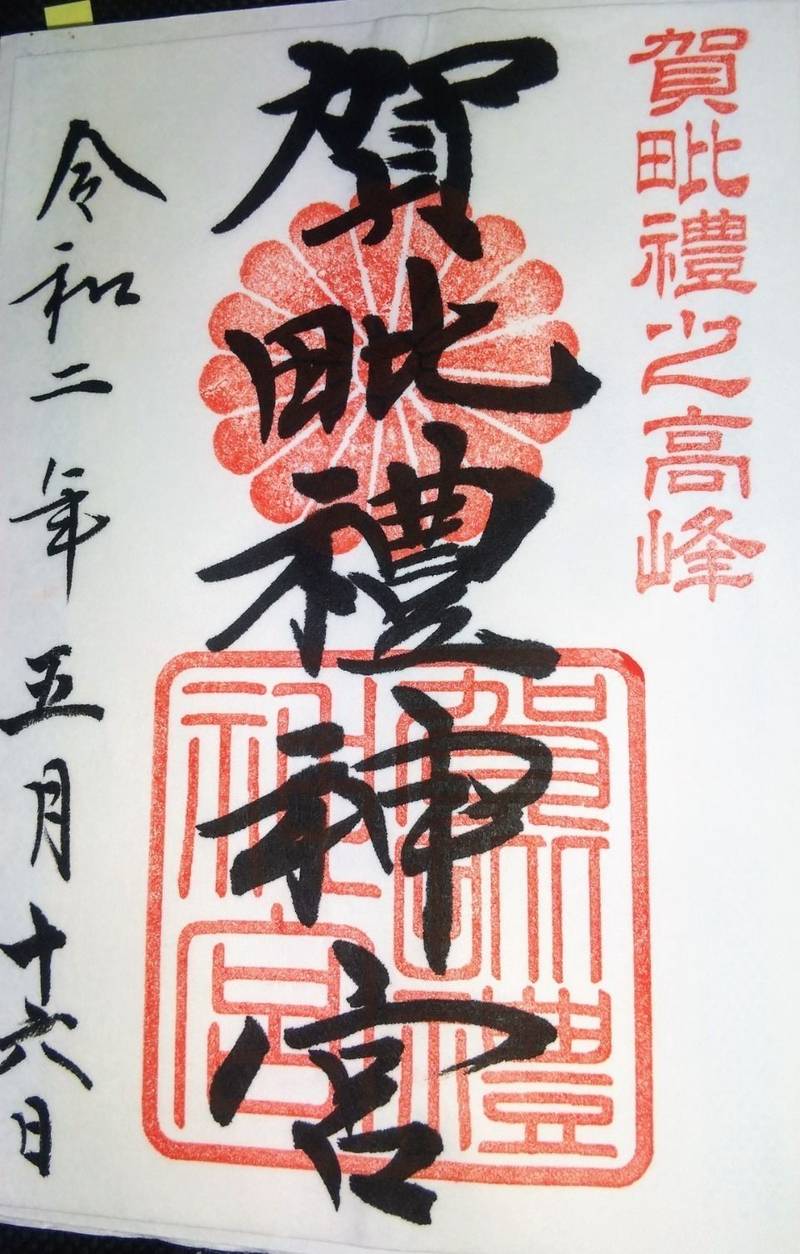 賀毗禮之高峰
賀毗禮神宮
賀毗禮神宮
令和二年五月十六日